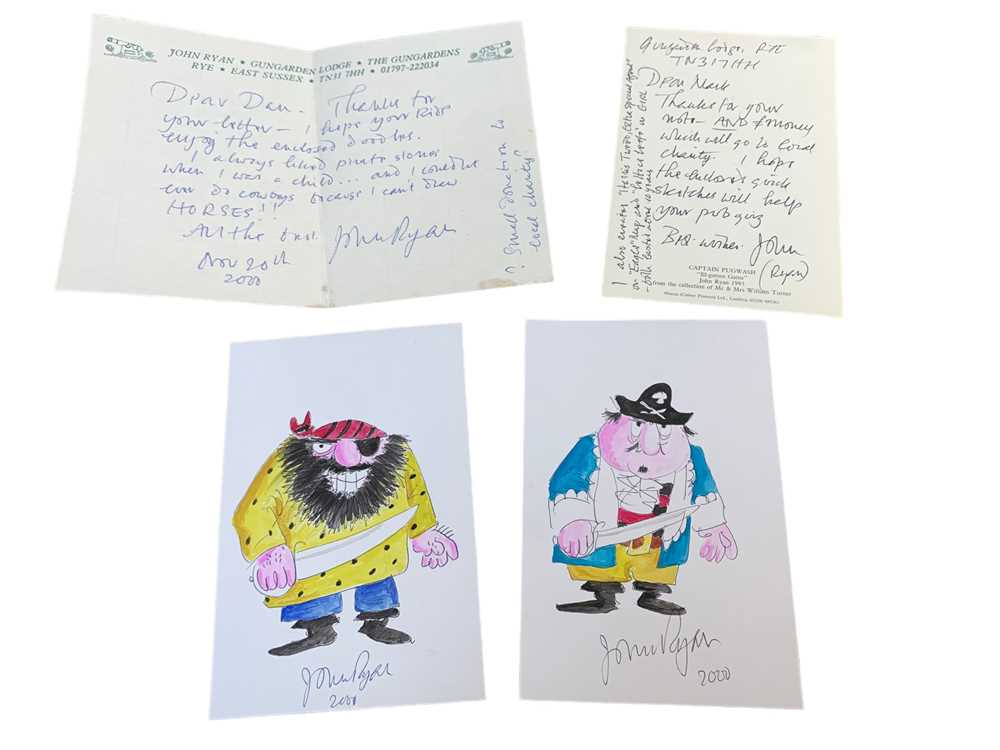 JOHN RYAN • GUNGARDEN LODGE • THE GUNGARDENS
RYE • EAST SUSSEX • TN31 7HH • 01797-222034
Dear Dan. Thanks for
your letter – I hope your kids
enjoy the enclosed doodles.
I always liked pirate stories
when I was a child... and I couldn't
ever do cowboys because I can't draw
HORSES!!
All the best. John Ryan
Nov 20th
2000
Small donation to
local charity?
Gungarden Lodge, RYE
TN31 7HH
Dear Mark
Thanks for your
note – AND money
which will go to local
charity. I hope
the enclosed quick
sketches will help
your pub gig
Best wishes. John
(Ryan)
I also created "Harris Tweed, Extra Special Agent"
in "Eagle" and "Lettice Leefe" in GIRL
– both lasted about 10 years
CAPTAIN PUGWASH
"Ill-gotten Gains"
John Ryan 1991
from the collection of Mr & Mrs William Turner
John Ryan
2000
John Ryan
2000